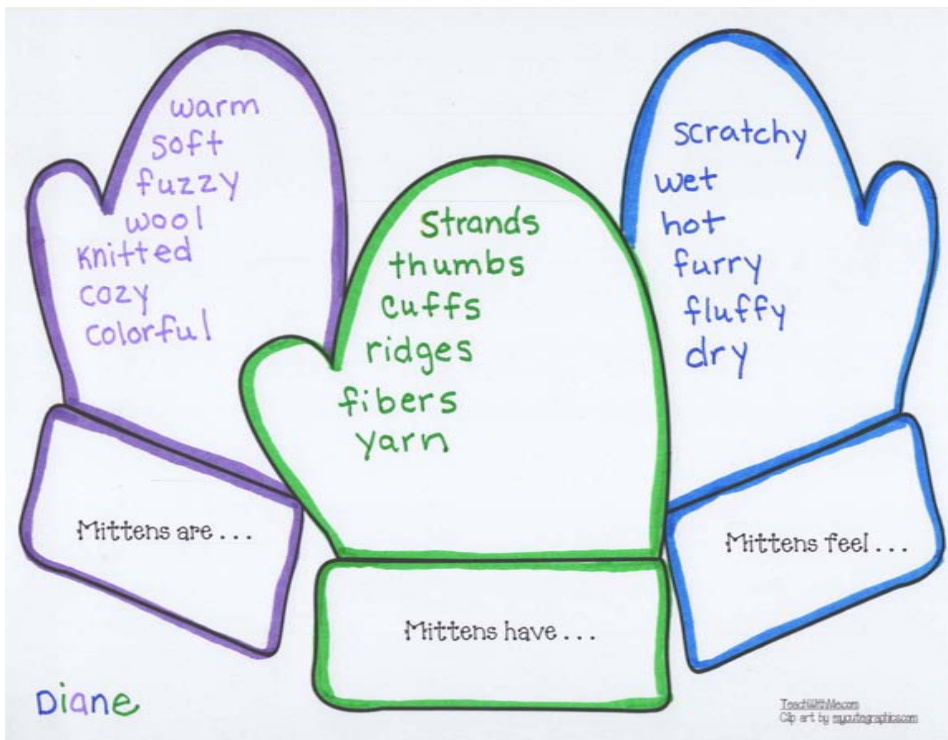 warm
soft
fuzzy
wool
Knitted
cozy
colorful
Mittens are . . .
Strands
thumbs
cuffs
ridges
fibers
yarn
Mittens have . . .
scratchy
wet
hot
furry
fluffy
dry
Mittens feel . . .
Diane
TeachWithMe.com
Clip art by mycutegraphics.com